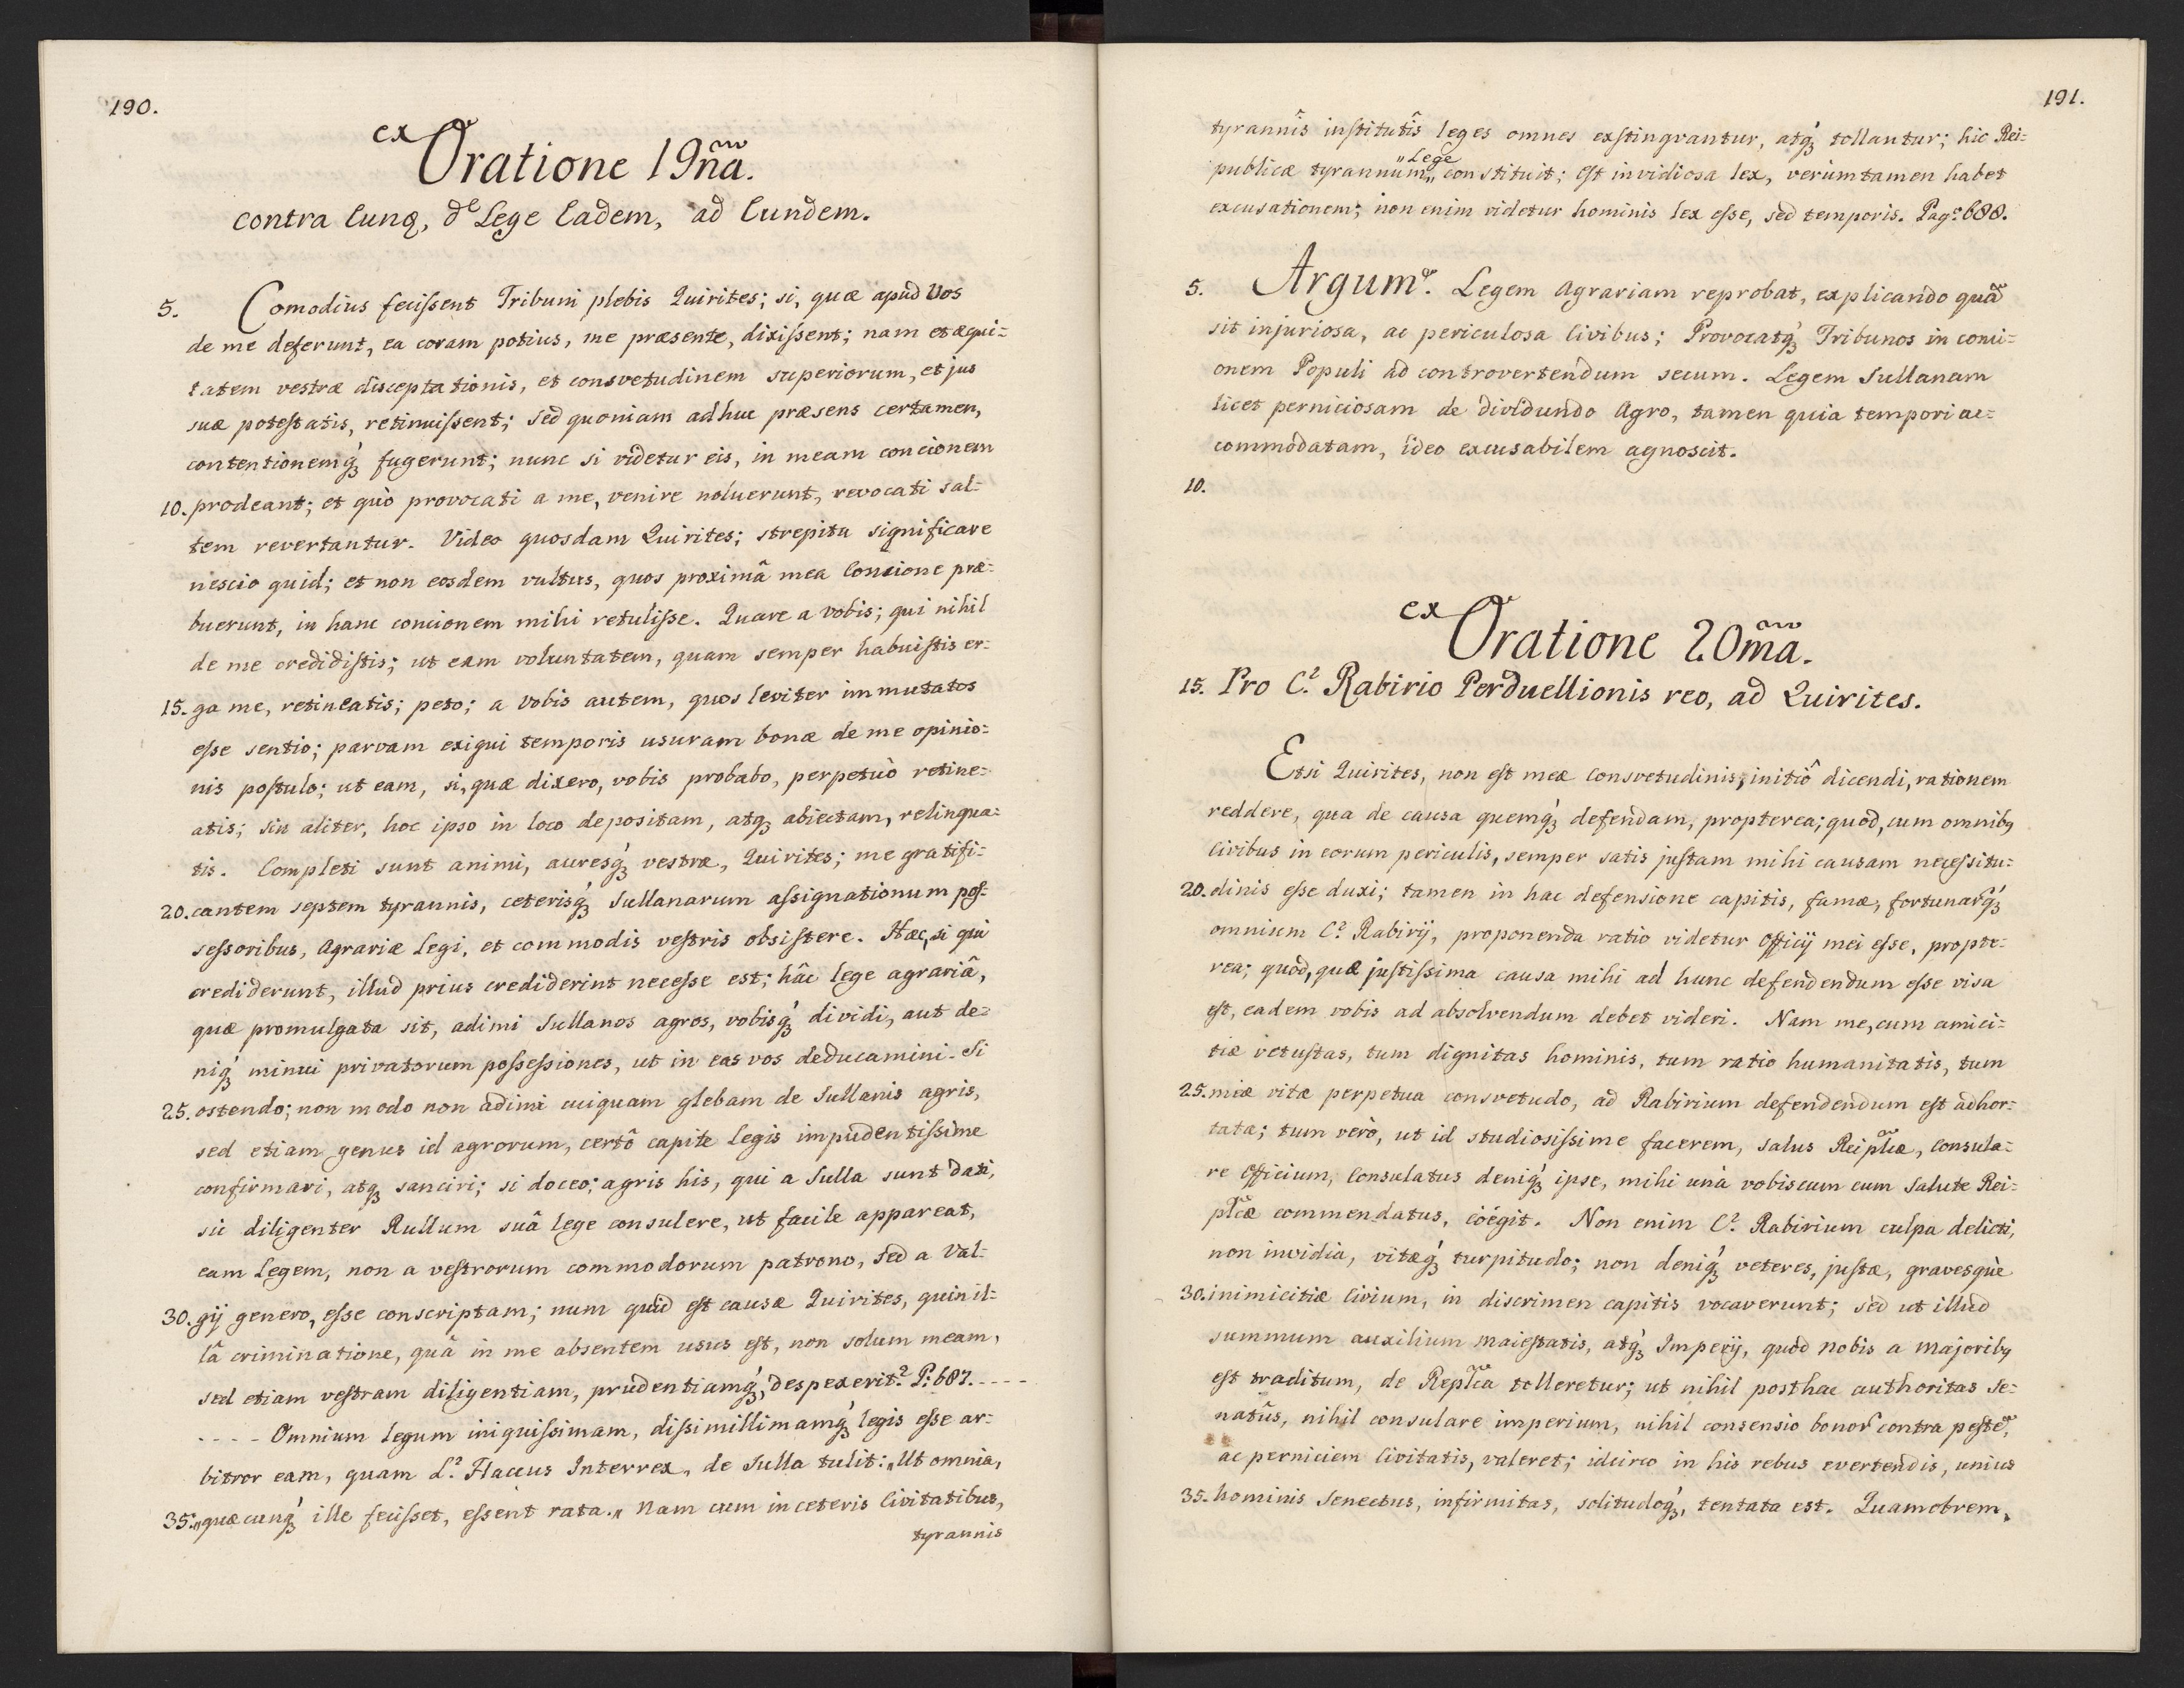 190.
ex Oratione 19nã.
contra Eunq, de Lege Eadem, ad Eundem.
5. Comodius feciſsent Tribuni plebis Quirites; si, quæ apud Vos
de me deferunt, ea coram potius, me præsente, dixiſsent; nam et æqui=
tatem vestræ disceptationis, et consvetudinem superiorum, et jus
suæ poteſtatis, retinuiſsent; sed quoniam adhuc præsens certamen,
contentionemq́ꝫ fugerunt; nunc si videtur eis, in meam concionem
10. prodeant; et quò provocati a me, venire noluerunt, revocati sal=
tem revertantur. Video quosdam Quirites; strepitu significare
nescio quid; et non eosdem vultus, quos proximâ mea Concione præ=
buerunt, in hanc concionem mihi retuliſse. Quare a vobis; qui nihil
de me credidiſtis; ut eam voluntatem, quam semper habuiſtis er=
15. ga me, retineatis; peto; a vobis autem, quos leviter immutatos
eſse sentio; parvam exigui temporis usuram bonæ de me opinio=
nis poſtulo; ut eam, si, quæ dixero, vobis probabo, perpetuò retine=
atis; sin aliter, hoc ipso in loco depositam, atqꝫ abiectam, relinqua=
tis. Completi sunt animi, auresq́ꝫ vestræ, Quirites; me gratifi=
20. cantem septem tyrannis, ceterisq́ꝫ Sullanarum aſsignationum poſ=
seſsoribus, Agrariæ Legi, et commodis veſtris obsiſtere. Hæc, si qui
crediderunt, illud prius crediderint neceſse est; hâc lege agrariâ,
quæ promulgata sit, adimi Sullanos agros, vobisq́ꝫ dividi, aut de=
niq́ꝫ minui privatorum poſseſsiones, ut in eas vos deducamini. Si
25. ostendo; non modo non adimi cuiquam glebam de Sullanis agris,
sed etiam genus id agrorum, certô capite Legis impudentiſsime
confirmari, atqꝫ sanciri; si doceo; agris his, qui a Sulla sunt dati,
sic diligenter Rullum suâ lege consulere, ut facile appareat,
eam Legem, non a veſtrorum commodorum patrono, sed a Val=
30. gij genero, eſse conscriptam; num quid eſt causæ Quirites, quin il=
lâ criminatione, quâ in me absentem usus eſt, non solum meam,
sed etiam veſtram diligentiam, prudentiamq́ꝫ, despexerit? P: 687. - - - -
- - - - Omnium legum iniquiſsimam, diſsimillimamq́ꝫ legis eſse ar=
bitror eam, quam L? Flaccus Interrex, de Sulla tulit: „Ut omnia,
35. „quæcunq́ꝫ ille feciſset, eſsent rata.„ Nam cum in ceteris Civitatibus,
tyrannis
191.
tyrannîs inſtitutîs leges omnes exſtingvantur, atq́ꝫ tollantur; hic Rei=
publicæ tyrannum „Lege„ conſtituit; eſt invidiosa lex, verùmtamen habet
excusationem; non enim videtur hominis lex eſse, sed temporis. Pag: 688.
5. Argumᵗ. Legem Agrariam reprobat, explicando quã
sit injuriosa, ac periculosa Civibus; Provocatq́ꝫ Tribunos in conci=
onem Populi ad controvertendum secum. Legem Sullanam
licet perniciosam de dividundo Agro, tamen quia tempori ac=
commodatam, ideo excusabilem agnoscit.
10.
ex Oratione 20mã.
15. Pro C? Rabirio Perduellionis reo, ad Quirites.
Etsi Quirites, non eſt meæ consvetudinis, initiô dicendi, rationem
reddere, qua de causa quemq́ꝫ defendam, propterea; quod, cum omnibꝫ
Civibus in eorum periculis, semper satis juſtam mihi causam neceſsitu=
20. dinis eſse duxi; tamen in hac defensione capitis, famæ, fortunarq́ꝫ
omnium C? Rabirij, proponenda ratio videtur Officij mei eſse, propte=
rea; quod, quæ juſtiſsima causa mihi ad hunc defendendum eſse visa
eſt, eadem vobis ad absolvendum debet videri. Nam me, cum amici=
tiæ vetuſtas, tum dignitas hominis, tum ratio humanitatis, tum
25. miæ vitæ perpetua consvetudo, ad Rabirium defendendum eſt adhor=
tata; tum verò, ut id studiosiſsime facerem, salus Reiplcæ, Consula=
re Officium, Consulatus deniq́ꝫ ipse, mihi unà vobiscum cum Salute Rei=
plcæ commendatus, coëgit. Non enim C? Rabirium culpa delicti,
non invidia, vitæq́ꝫ turpitudo; non deniq́ꝫ veteres, juſtæ, gravesquè
30. inimicitiæ Civium, in discrimen capitis vocaverunt; sed ut illud
summum auxilium maieſtatis, atq́ꝫ Imperij, quod nobis a majoribꝫ
eſt traditum, de Replca tolleretur; ut nihil posthac authoritas Se=
natûs, nihil consulare imperium, nihil consensio bonor̃ contra peſtẽ,
ac perniciem Civitatis, valeret; idcirco in his rebus evertendis, unius
35. hominis Senectus, infirmitas, solitudoq́ꝫ, tentata est. Quamobrem,